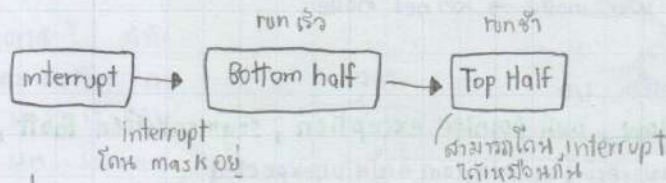 run เร็ว
run ช้า
interrupt
Bottom half
Top Half
interrupt
โดน mask อยู่
สามารถโดน interrupt
ได้เหมือนกัน